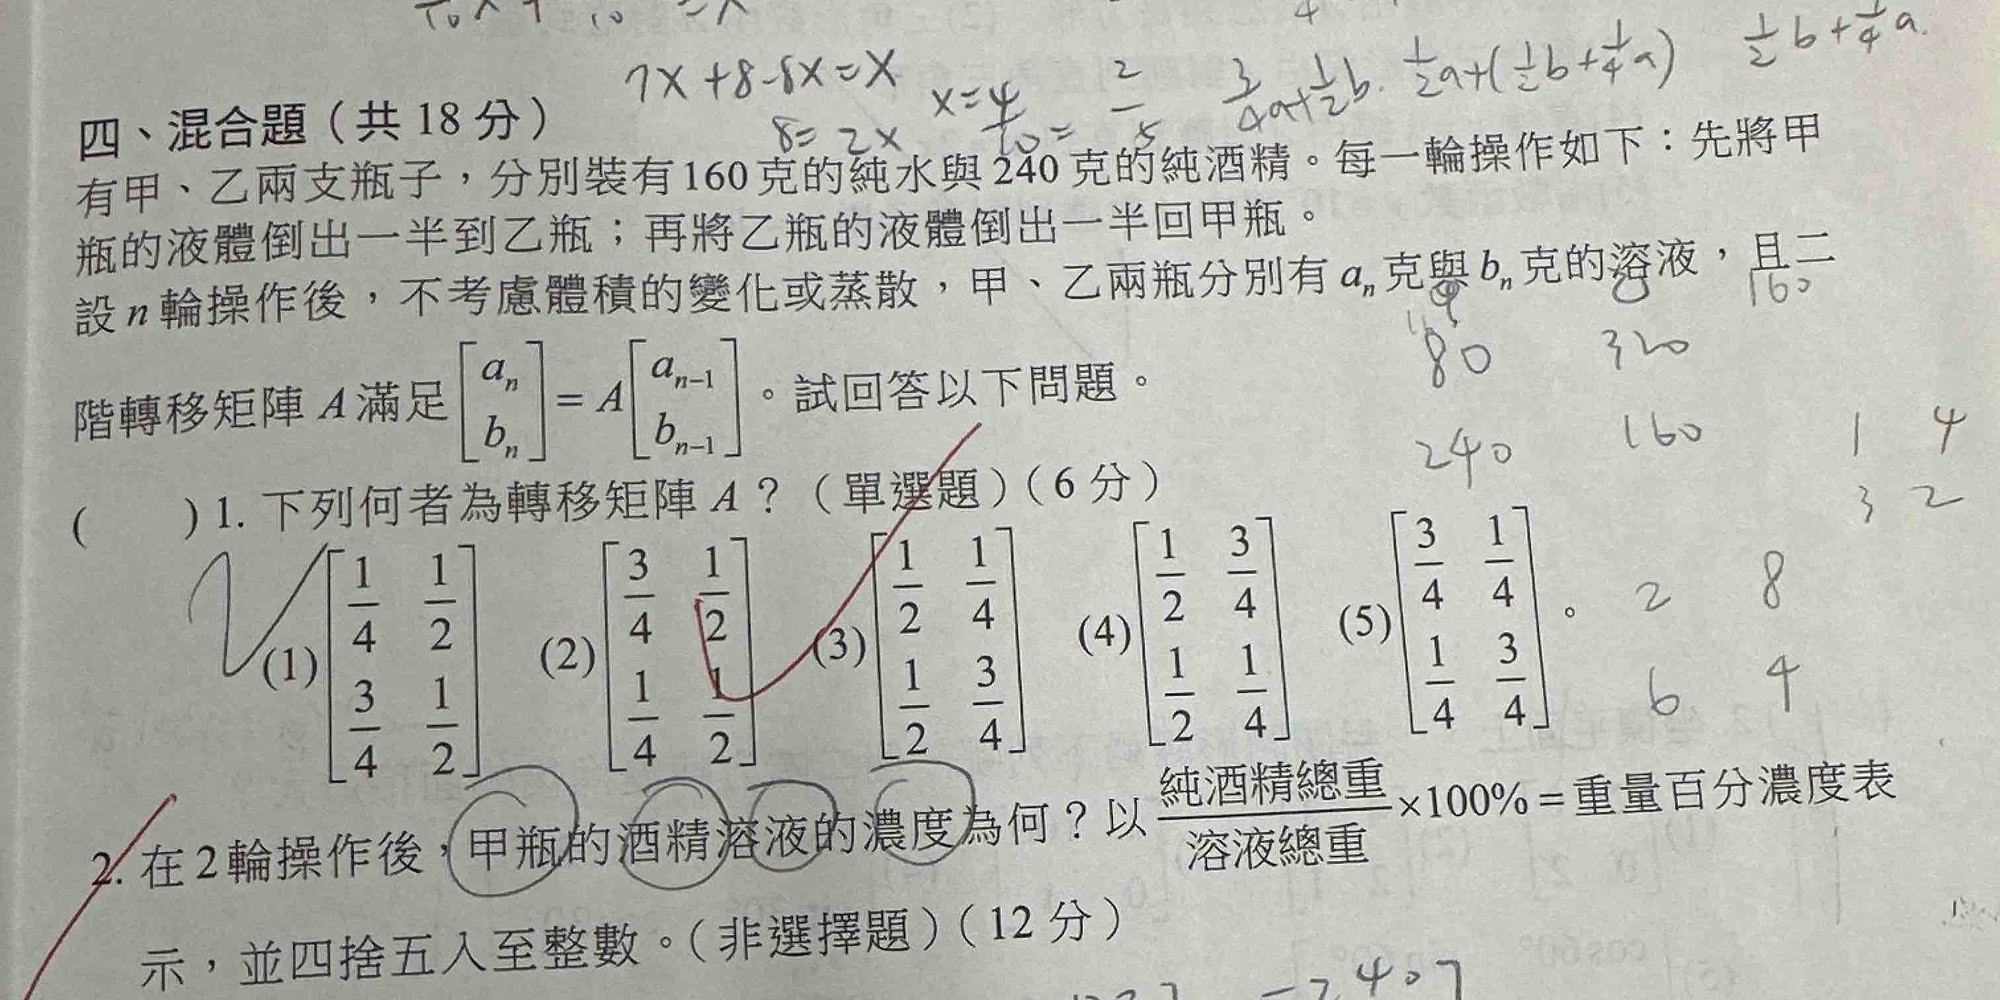 7x+8-8x=x
8=2x
x=4/10=2/5
3/4a+1/2b. 1/2a+(1/2b+1/4a) 1/2b+1/4a.
四、混合題（共18分）
有甲、乙兩支瓶子，分別裝有160克的純水與240克的純酒精。每一輪操作如下：先將甲
瓶的液體倒出一半到乙瓶；再將乙瓶的液體倒出一半回甲瓶。
設n輪操作後，不考慮體積的變化或蒸散，甲、乙兩瓶分別有aₙ克與bₙ克的溶液，且二
160
80 320
階轉移矩陣A滿足[aₙ bₙ]=A[aₙ₋₁ bₙ₋₁]。試回答以下問題。
240 160
1 4
3 2
( )1. 下列何者為轉移矩陣A？（單選題）（6分）
2
(1)[1/4 1/2; 3/4 1/2] (2)[3/4 1/2; 1/4 1/2] (3)[1/2 1/4; 1/2 3/4] (4)[1/2 3/4; 1/2 1/4] (5)[3/4 1/4; 1/4 3/4]。
2 8
6 4
2. 在2輪操作後，甲瓶的酒精溶液的濃度為何？以 純酒精總重/溶液總重 ×100%=重量百分濃度表
示，並四捨五入至整數。（非選擇題）（12分）